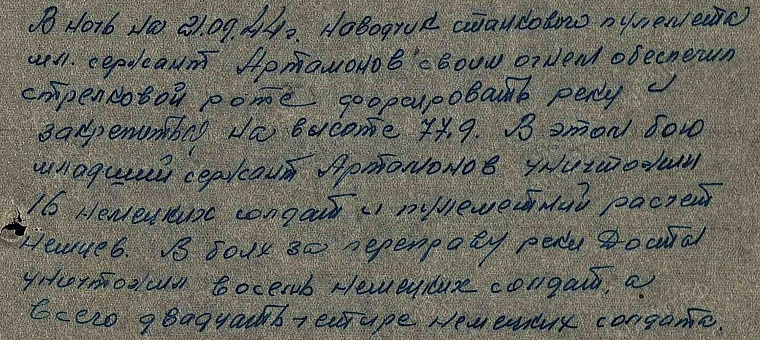 В ночь на 21.09.44г. наводчик станкового пулемета
мл. сержант Артамонов своим огнем обеспечил
стрелковой роте форсировать реку и
закрепиться на высоте 77,9. В этом бою
младший сержант Артамонов уничтожил
16 немецких солдат и пулеметный расчет
немцев. В боях за переправу реки
уничтожил восемь немецких солдат, а
всего двадцать четыре немецких солдата.